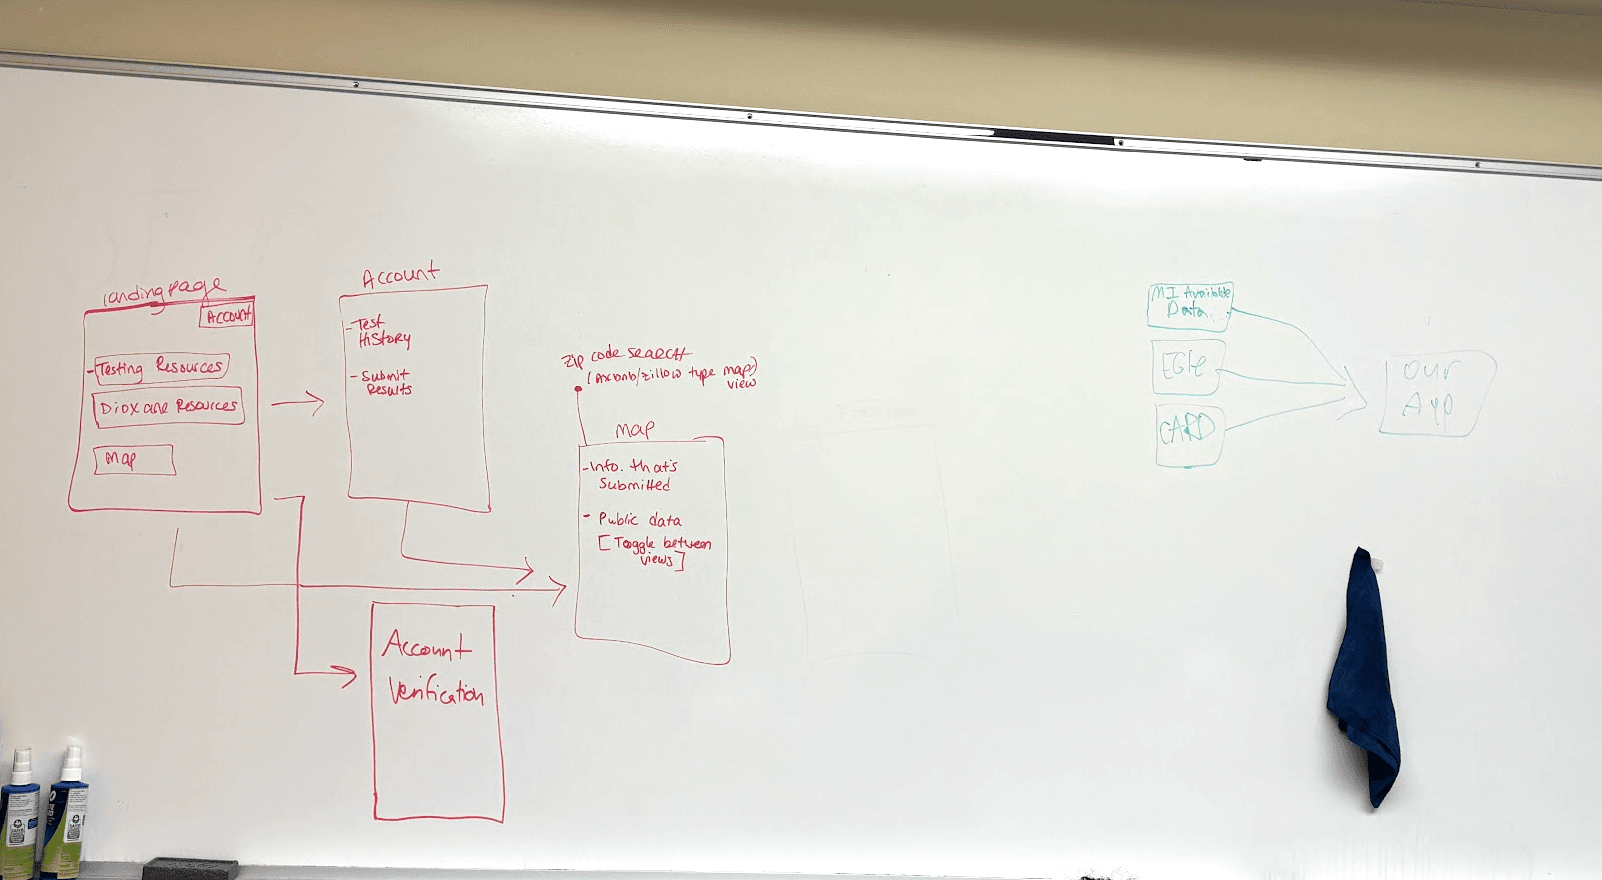 landing page
Account
- Testing Resources
Dioxane Resources
Map
Account
- Test
History
- Submit
Results
Zip code search
(Airbnb/zillow type map)
view
Map
- Info. that's
Submitted
- Public data
[Toggle between
views]
Account
Verification
MI Available
Data
EGLE
CARD
our
App